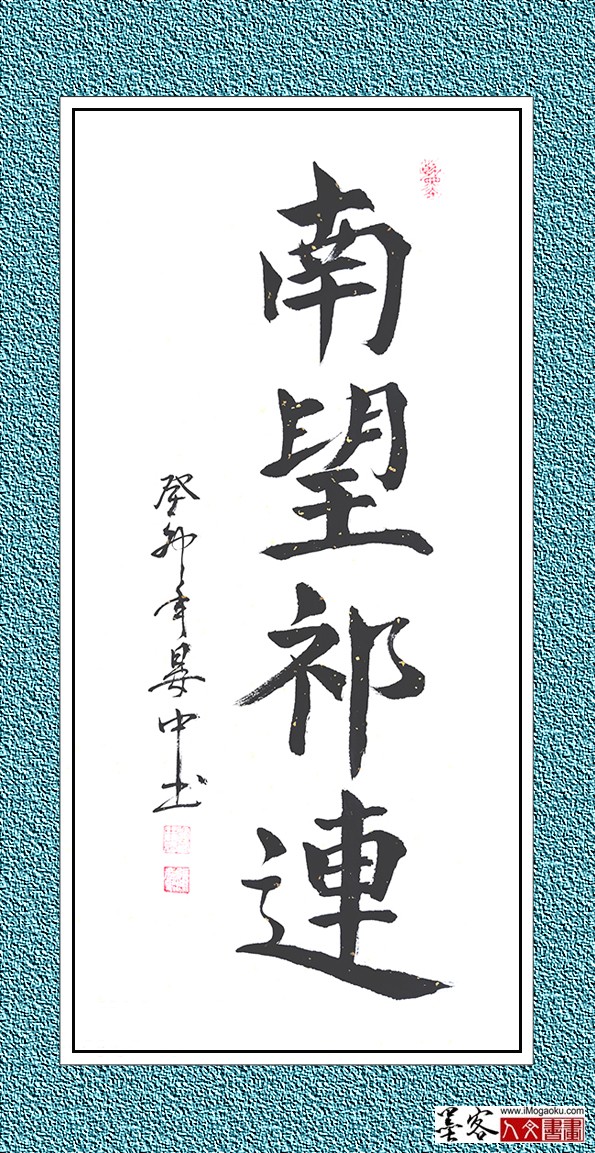 南望祁連
癸卯年晏中书
墨客
www.iMogaoku.com
人文書畫